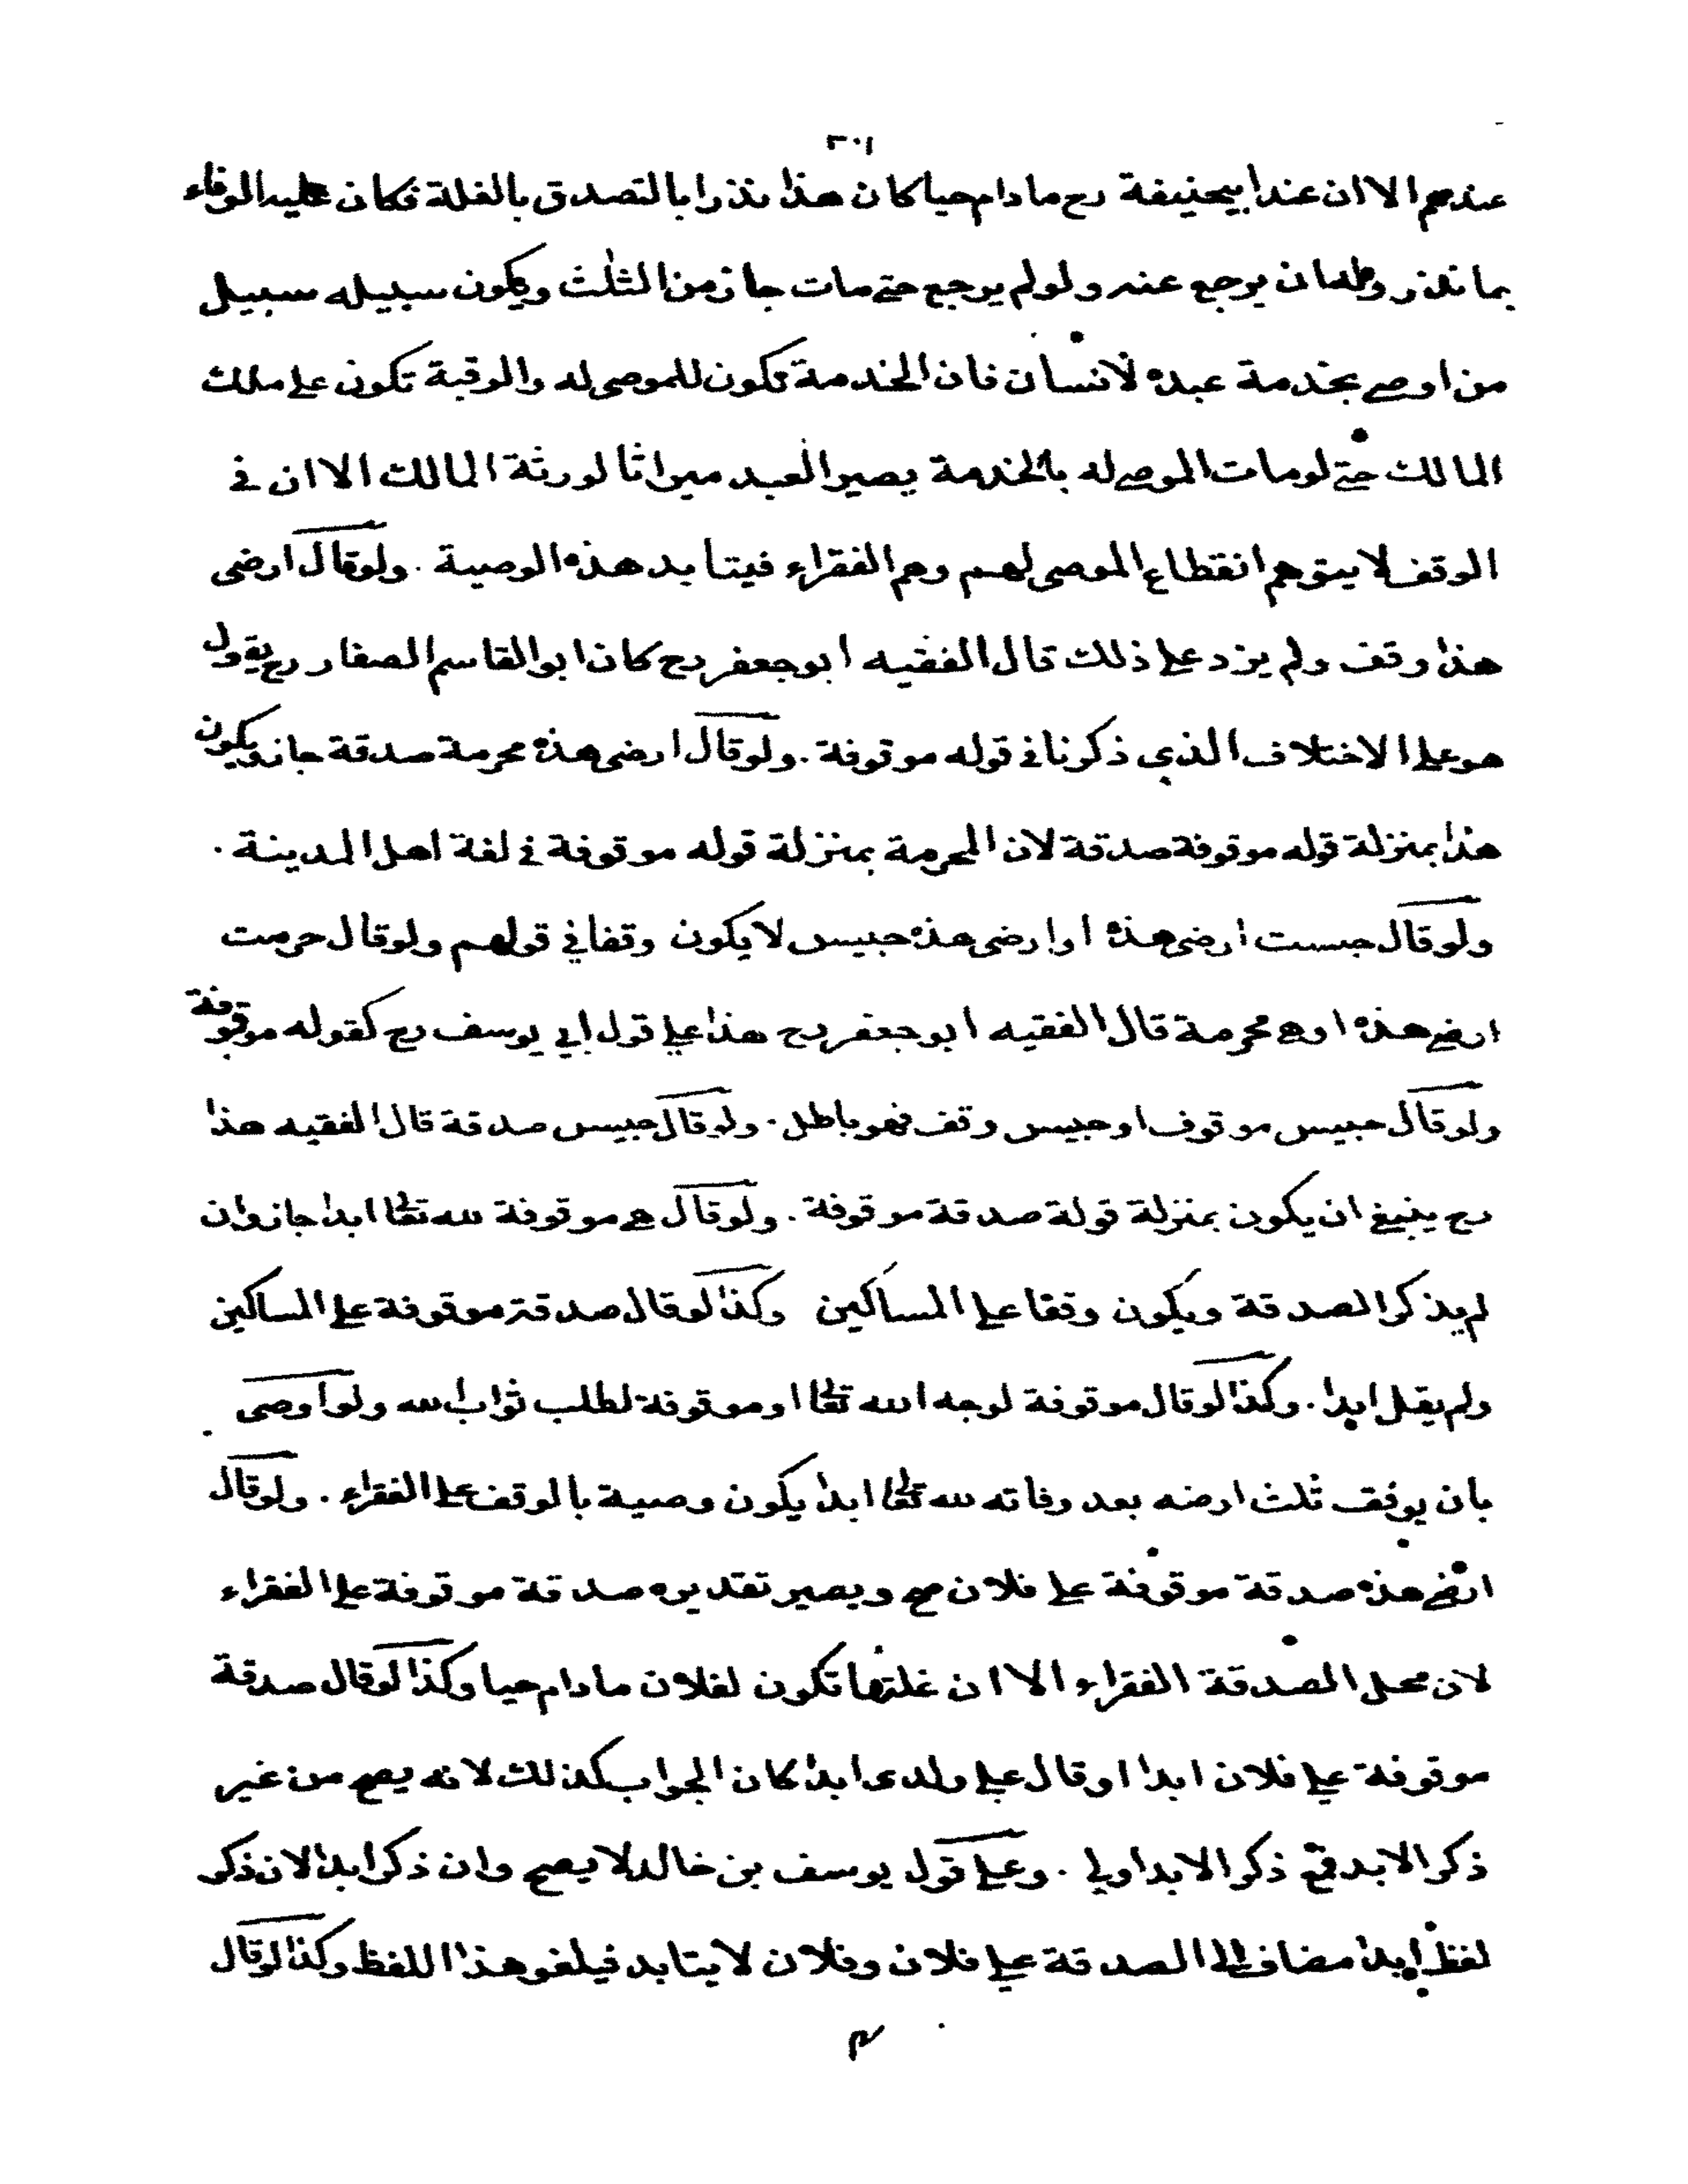 ٣٠١
عندهم الا ان عند ابيحنيفة رح ما دام حيا كان هذا نذرا بالتصدق بالغلة فكان عليه الوفاء
بما نذر وله ان يرجع عنه ولو لم يرجع حتى مات جاز من الثلث ويكون سبيله سبيل
من اوصى بخدمة عبده لانسان فان الخدمة تكون للموصى له والرقبة تكون على ملك
المالك حتى لو مات الموصى له بالخدمة يصير العبد ميراثا لورثة المالك الا ان في
الوقف لا يتوهم انقطاع الموصى لهم وهم الفقراء فيتابد هذه الوصية . ولو قال ارضى
هذا وقف ولم يزد على ذلك قال الفقيه ابو جعفر رح كان ابو القاسم الصفار رح يقول
هو على الاختلاف الذي ذكرنا في قوله موقوفة . ولو قال ارضى هذه محرمة صدقة جاز ويكون
هذا بمنزلة قوله موقوفة صدقة لان المحرمة بمنزلة قوله موقوفة في لغة اهل المدينة .
ولو قال حبست ارضى هذه او ارضى هذه حبيس لا يكون وقفا في قولهم ولو قال حرمت
ارضى هذه او هى محرمة قال الفقيه ابو جعفر رح هذا على قول ابي يوسف رح كقوله موقوفة
ولو قال حبيس موقوف او حبيس وقف فهو باطل . ولو قال حبيس صدقة قال الفقيه هذا
رح ينبغى ان يكون بمنزلة قولة صدقة موقوفة . ولو قال هى موقوفة لله تعالى ابدا جاز وان
لم يذكر الصدقة ويكون وقفا على المساكين وكذا لو قال صدقة موقوفة على المساكين
ولم يقل ابدا . وكذا لو قال موقوفة لوجه الله تعالى او موقوفة لطلب ثواب الله ولو اوصى
بان يوقف ثلث ارضه بعد وفاته لله تعالى ابدا يكون وصية بالوقف على الفقراء . ولو قال
ارضى هذه صدقة موقوفة على فلان صح ويصير تقديره صدقة موقوفة على الفقراء
لان محل الصدقة الفقراء الا ان غلتها تكون لفلان ما دام حيا وكذا لو قال صدقة
موقوفة على فلان ابدا او قال على ولدى ابدا كان الجواب كذلك لانه يصح من غير
ذكر الابد فمع ذكر الابد اولى . وعلى قول يوسف بن خالد لا يصح وان ذكر ابدا لان ذكر
لفظ ابدا مضاف الى الصدقة على فلان وفلان لا يتابد فيلغو هذا اللفظ وكذا لو قال